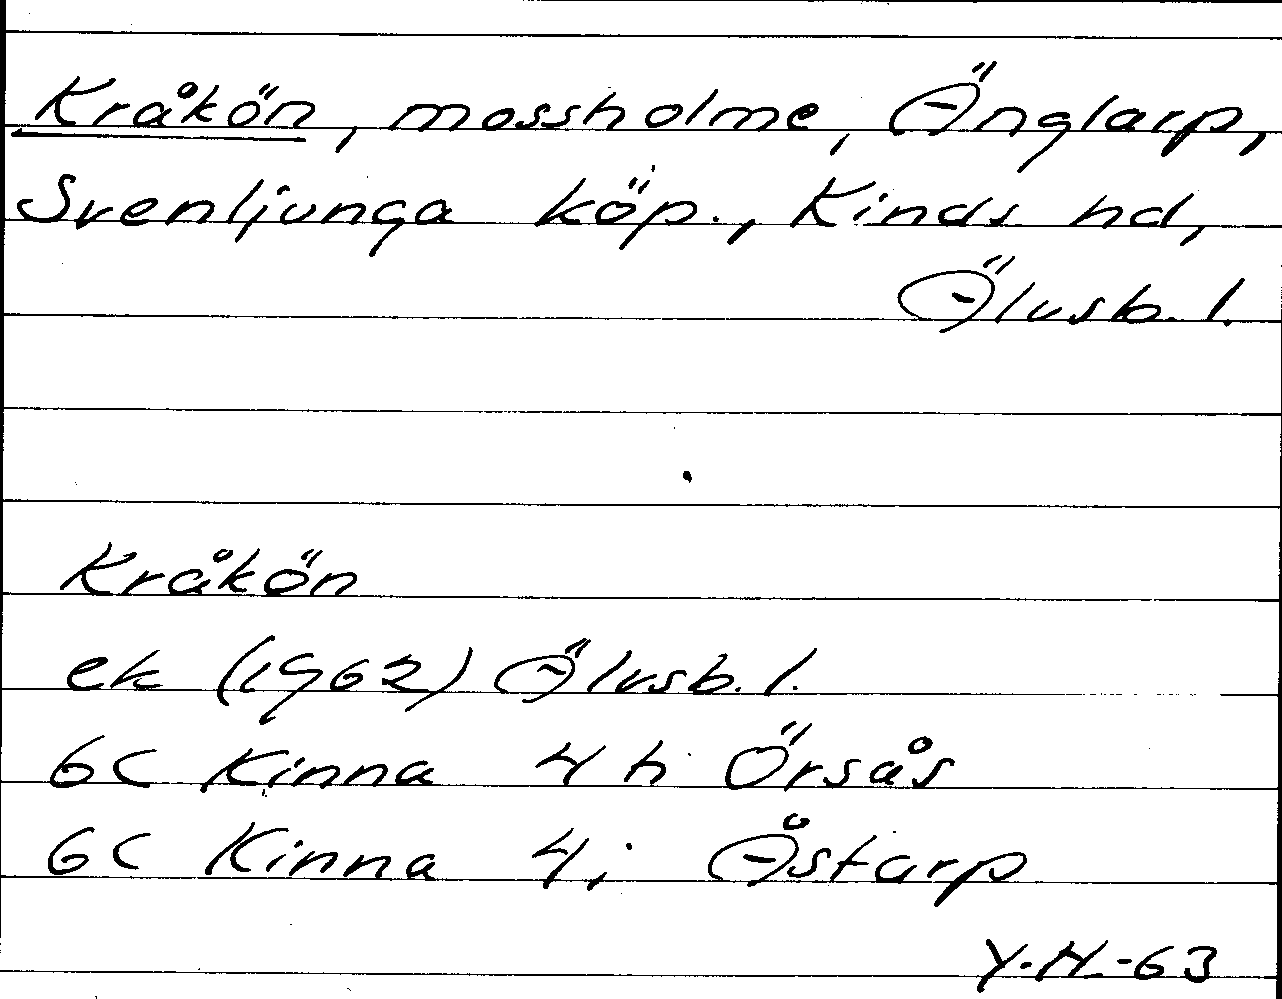 Kråkön, mossholme, Änglarp,
Svenljunga köp., Kinds hd,
Älvsb. l.
Kråkön
ek (1962) Älvsb. l.
6C Kinna 4 h Örsås
6C Kinna 4 i Åstarp
Y.H.-63